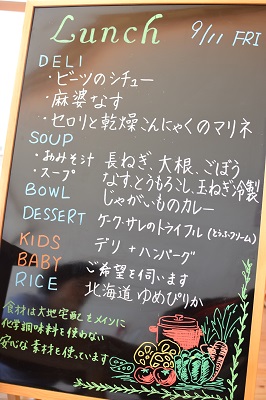 Lunch 9/11 FRI
DELI
・ビーツのシチュー
・麻婆なす
・セロリと乾燥こんにゃくのマリネ
SOUP
・おみそ汁 長ねぎ、大根、ごぼう
・スープ なす、とうもろこし、玉ねぎ冷製
BOWL じゃがいものカレー
DESSERT ケークサレのトライフル(とうふクリーム)
KIDS デリ + ハンバーグ
BABY ご希望を伺います
RICE 北海道 ゆめぴりか
食材は大地宅配をメインに
化学調味料を使わない
安心な素材を使っています